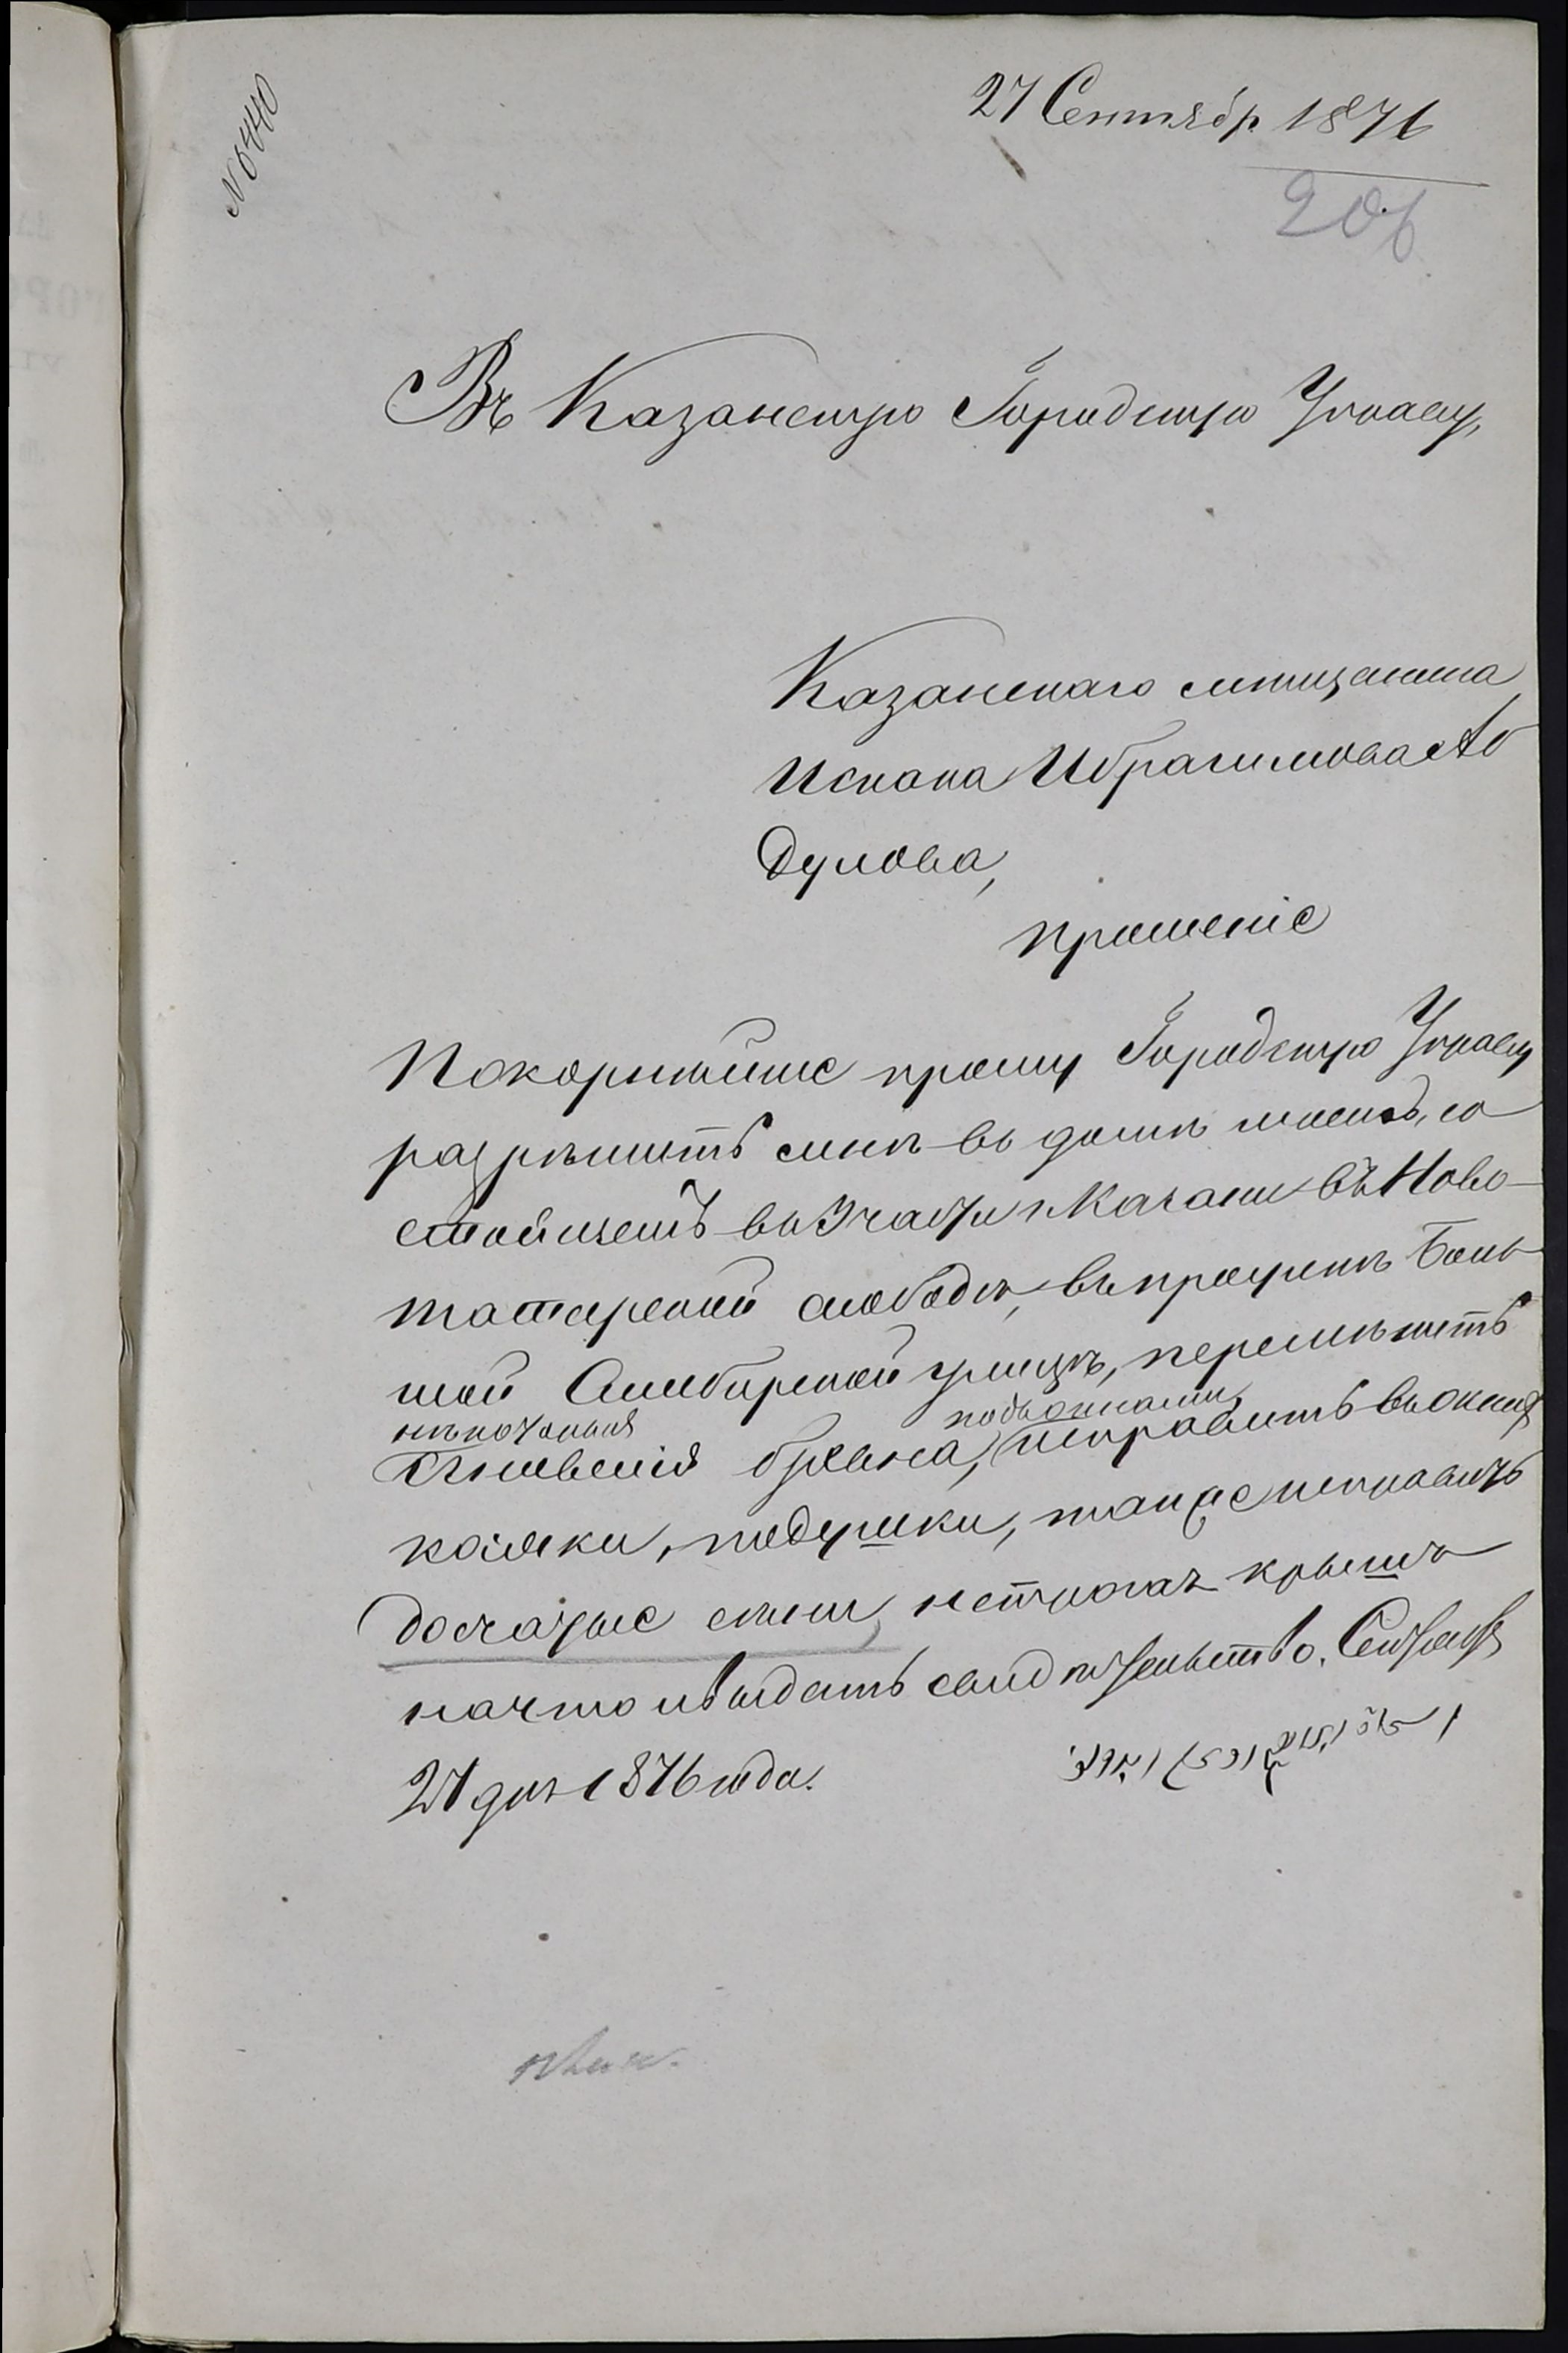 № 5440
27 Сентябр 1876
206
Въ Казанскую Городскую Управу,
Казанскаго мѣщанина
Исхака Ибрагимова Аб
дулова,
прошеніе
Покорнѣйше прошу Городскую Управу
разрѣшить мнѣ въ домѣ моемъ, со
стоящемъ въ 3 части г. Казани въ Ново-
татарской слободѣ, въ проулкѣ Боль
шой Симбирской улицѣ, перемѣнить
нѣкоторыя подъ окнами
бревна, исправить въ окнахъ
косяки, подушки, также исправить
досчатые сѣни, крыши
на что и выдать свидѣтельство. Сентября
27 дня 1876 года.